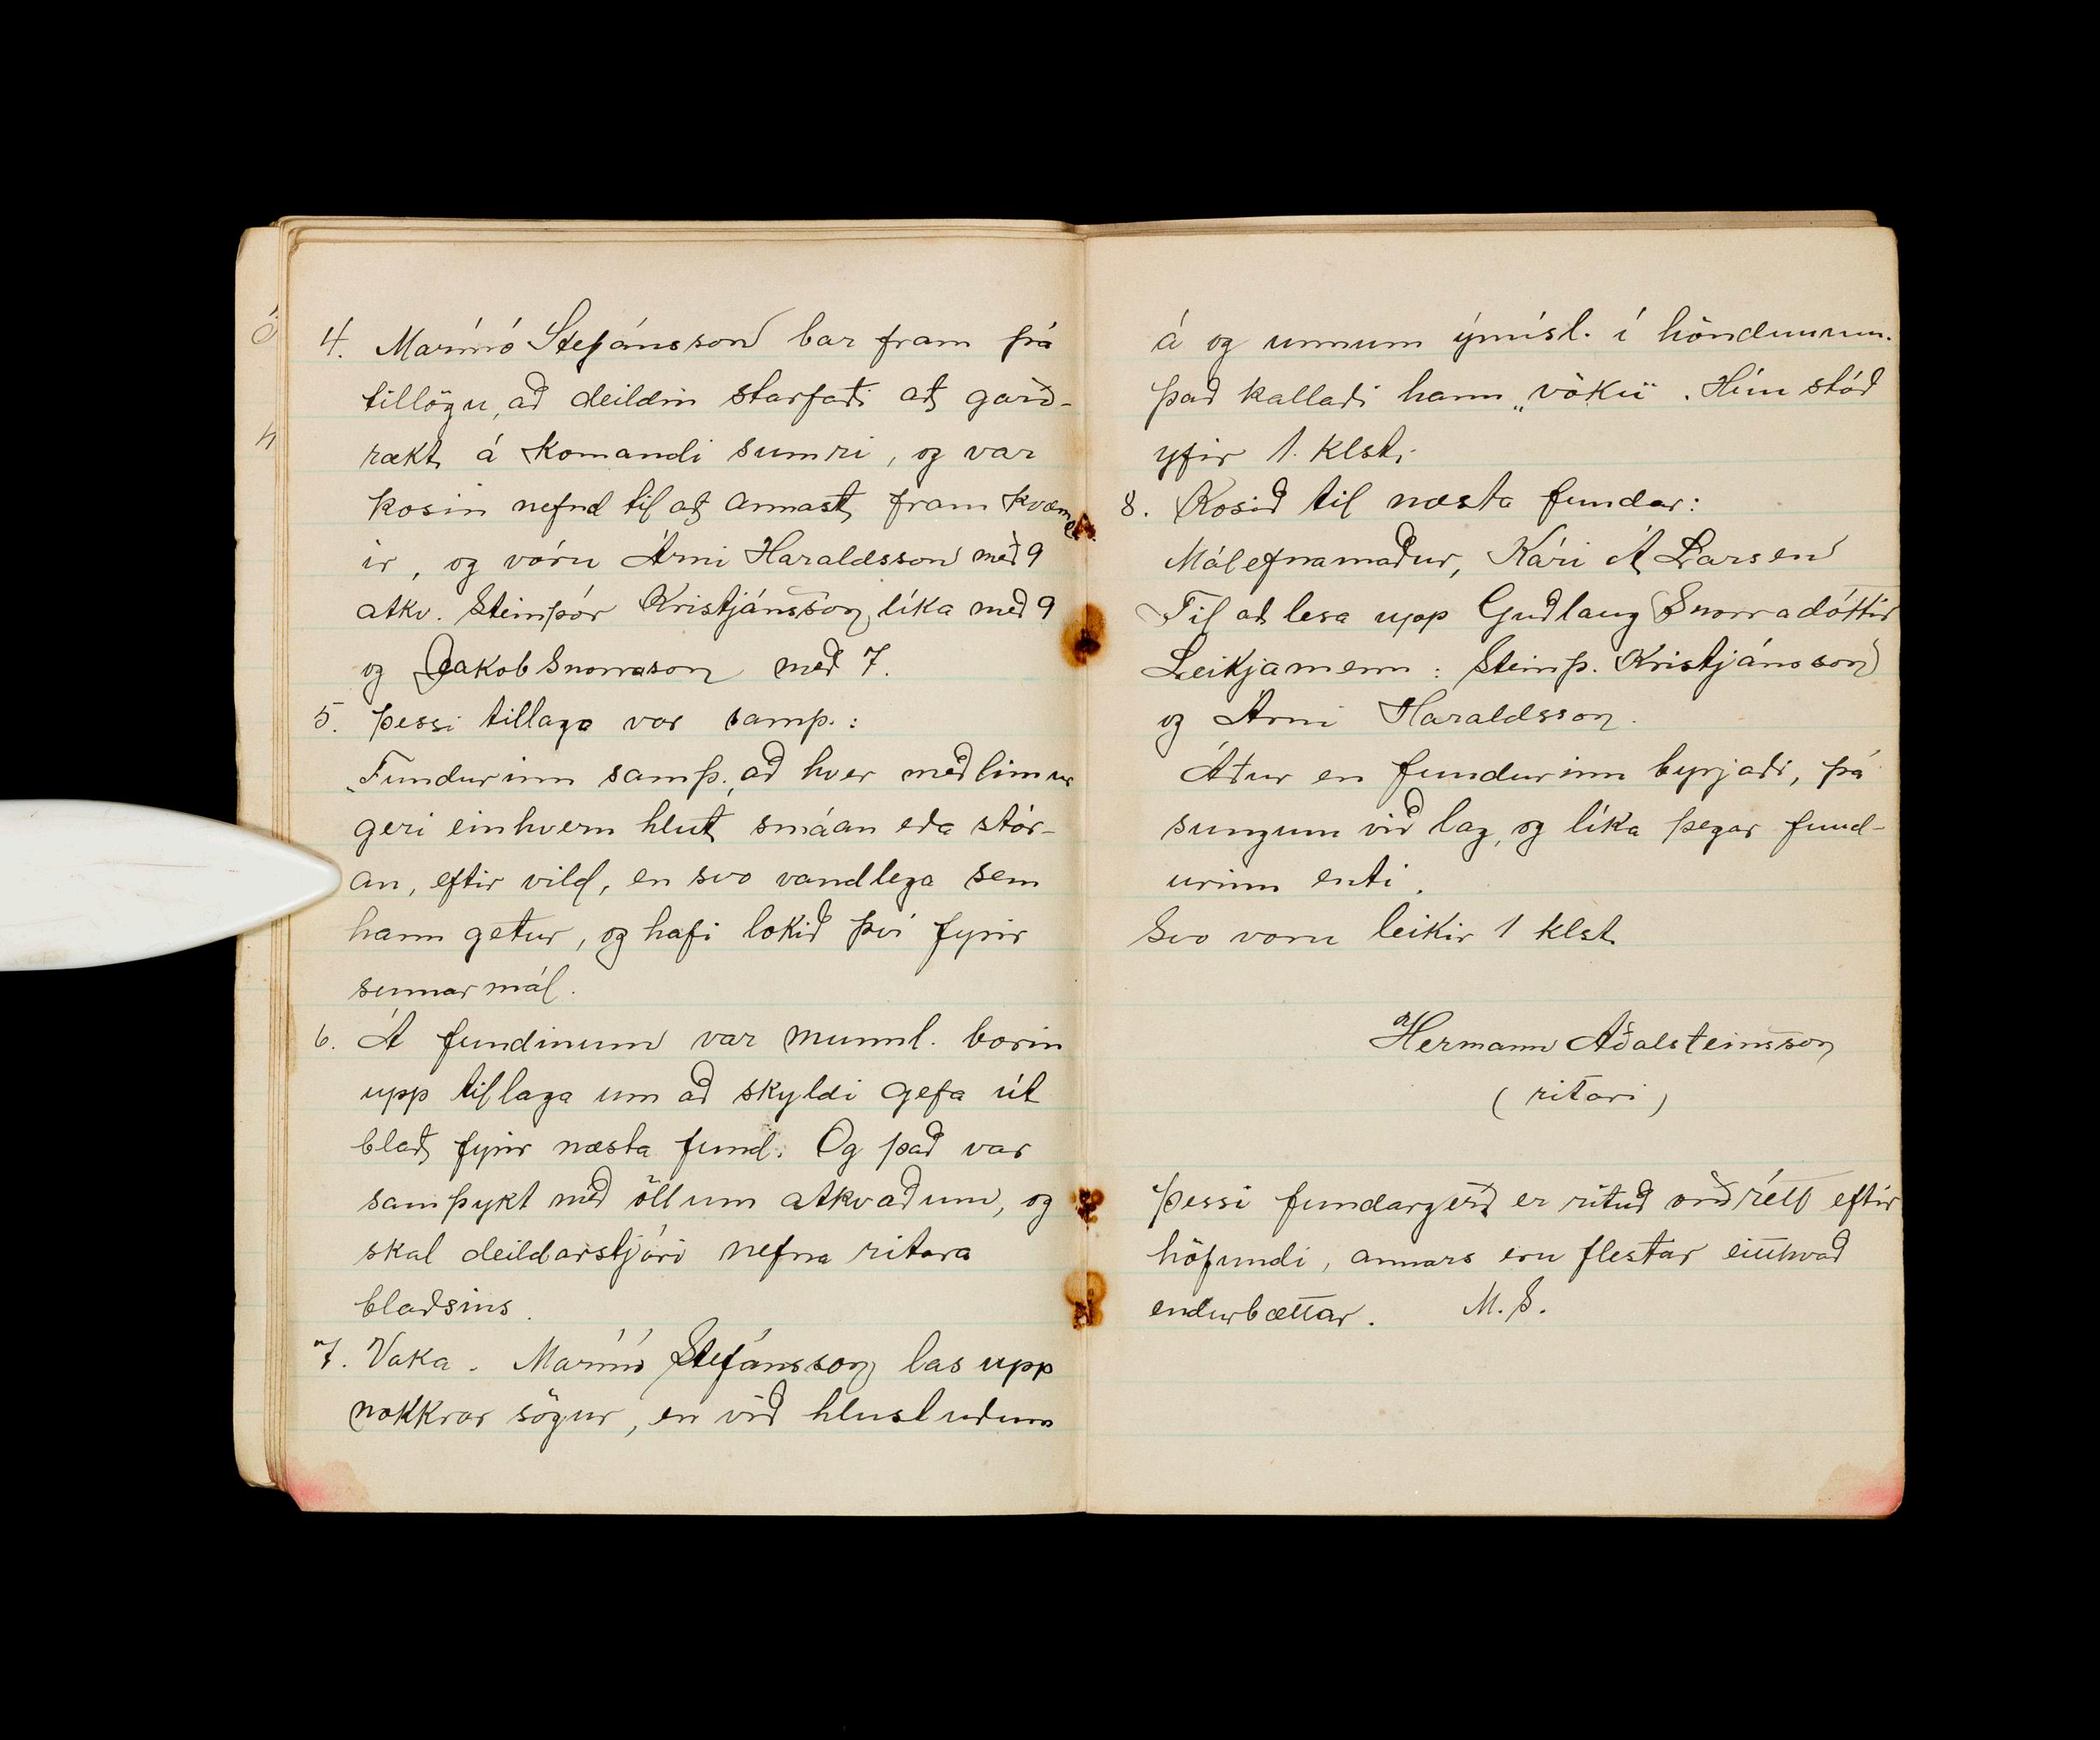 4. Marinó Stefánsson bar fram þá
tillögu, að deildin starfaði að garð-
rækt á komandi sumri, og var
kosin nefnd til að annast fram kvæmd
ir, og vóru Árni Haraldsson með 9
atkv. Steinþór Kristjánsson, líka með 9
og Jakob Snorrason með 7.
5. Þessi tillaga var samþ.:
„Fundurinn samþ., að hver meðlimur
geri einhvern hlut, smáan eða stór-
an, eftir vild, en svo vandlega sem
hann getur, og hafi lokið því fyrir
sumarmál.
6. Á fundinum var munnl. borin
upp tillaga um að skyldi gefa út
blað, fyrir næsta fund. Og það var
samþykt með öllum atkvæðum, og
skal deildarstjóri nefna ritara
blaðsins.
7. Vaka. Marinó Stefánsson las upp
nokkrar sögur, en við hlustuðum
á og unnum ýmisl. í höndunum.
Það kallaði hann „vöku“. Hún stóð
yfir 1. klst.
8. Kosið til næsta fundar:
Málefnamaður, Kári Á Larsen
Til að lesa upp Guðlaug Snorradóttir
Leikjamenn: Steinþ. Kristjánsson
og Árni Haraldsson.
Áður en fundurinn byrjaði, þá
sungum við lag, og líka þegar fund-
urinn enti.
Svo voru leikir 1 klst
Hermann Aðalsteinsson
(ritari)
Þessi fundargerð er rituð orðrétt eftir
höfundi, annars eru flestar eitthvað
endurbættar. M. S.